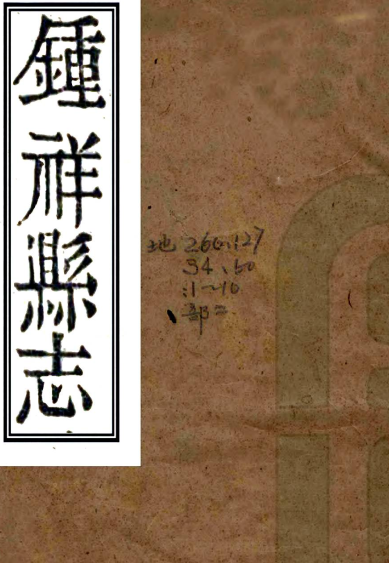 鍾祥縣志
地 260.127
34.50
:1~10
部二